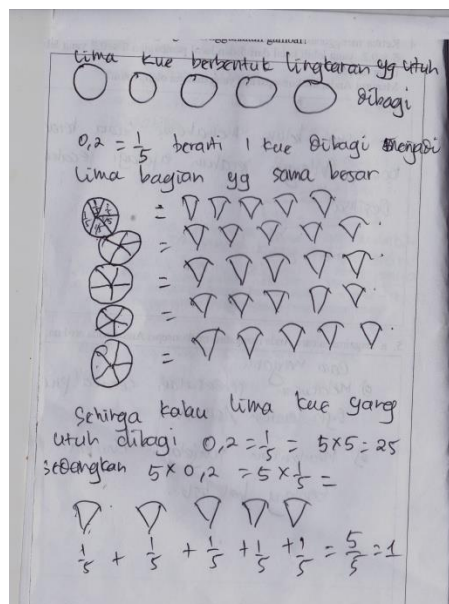 lima kue berbentuk lingkaran yg utuh
dibagi
0,2 = 1/5 berarti 1 kue dibagi menjadi
lima bagian yg sama besar
=
=
=
=
=
Sehirga kalau lima kue yang
utuh dibagi 0,2 = 1/5 = 5x5 = 25
sedangkan 5 x 0,2 = 5 x 1/5 =
1/5 + 1/5 + 1/5 + 1/5 + 1/5 = 5/5 = 1